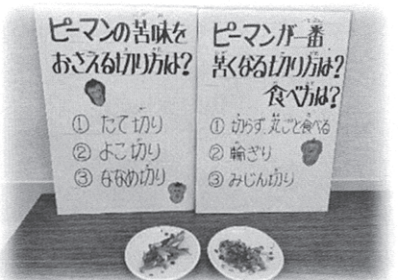 ピーマンの苦味を
おさえる切り方は？
① たて切り
② よこ切り
③ ななめ切り
ピーマンが一番
苦くなる切り方は？
食べ方は？
① 切らず、丸ごと食べる
② 輪ぎり
③ みじん切り